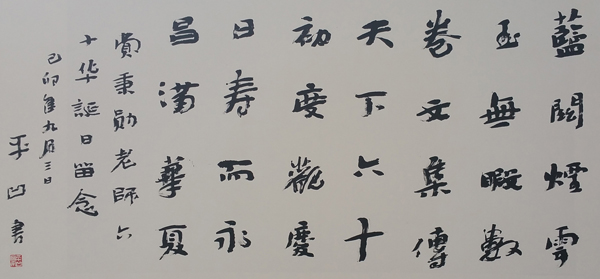 藍關煙雲
玉無暇數
卷文集傳
天下六十
初度觀慶
日壽而永
昌滿華夏
賞秉勋老師六
十华誕日留念
己卯年九月三日
平凹書